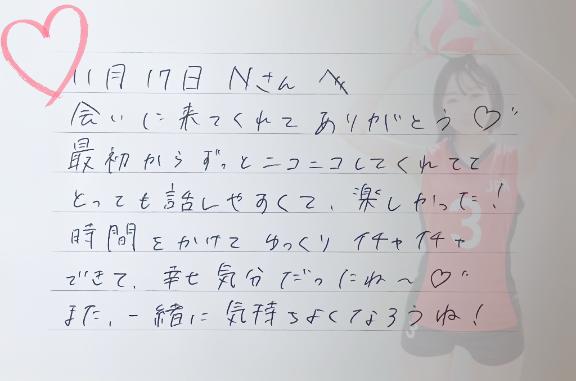 11月17日 Nさん へ
会いに来てくれてありがとう♡"
最初からずっとニコニコしてくれてて
とっても話しやすくて、楽しかった!
時間をかけてゆっくりイチャイチャ
できて、幸せ気分だったね〜♡"
また、一緒に気持ちよくなろうね!
3